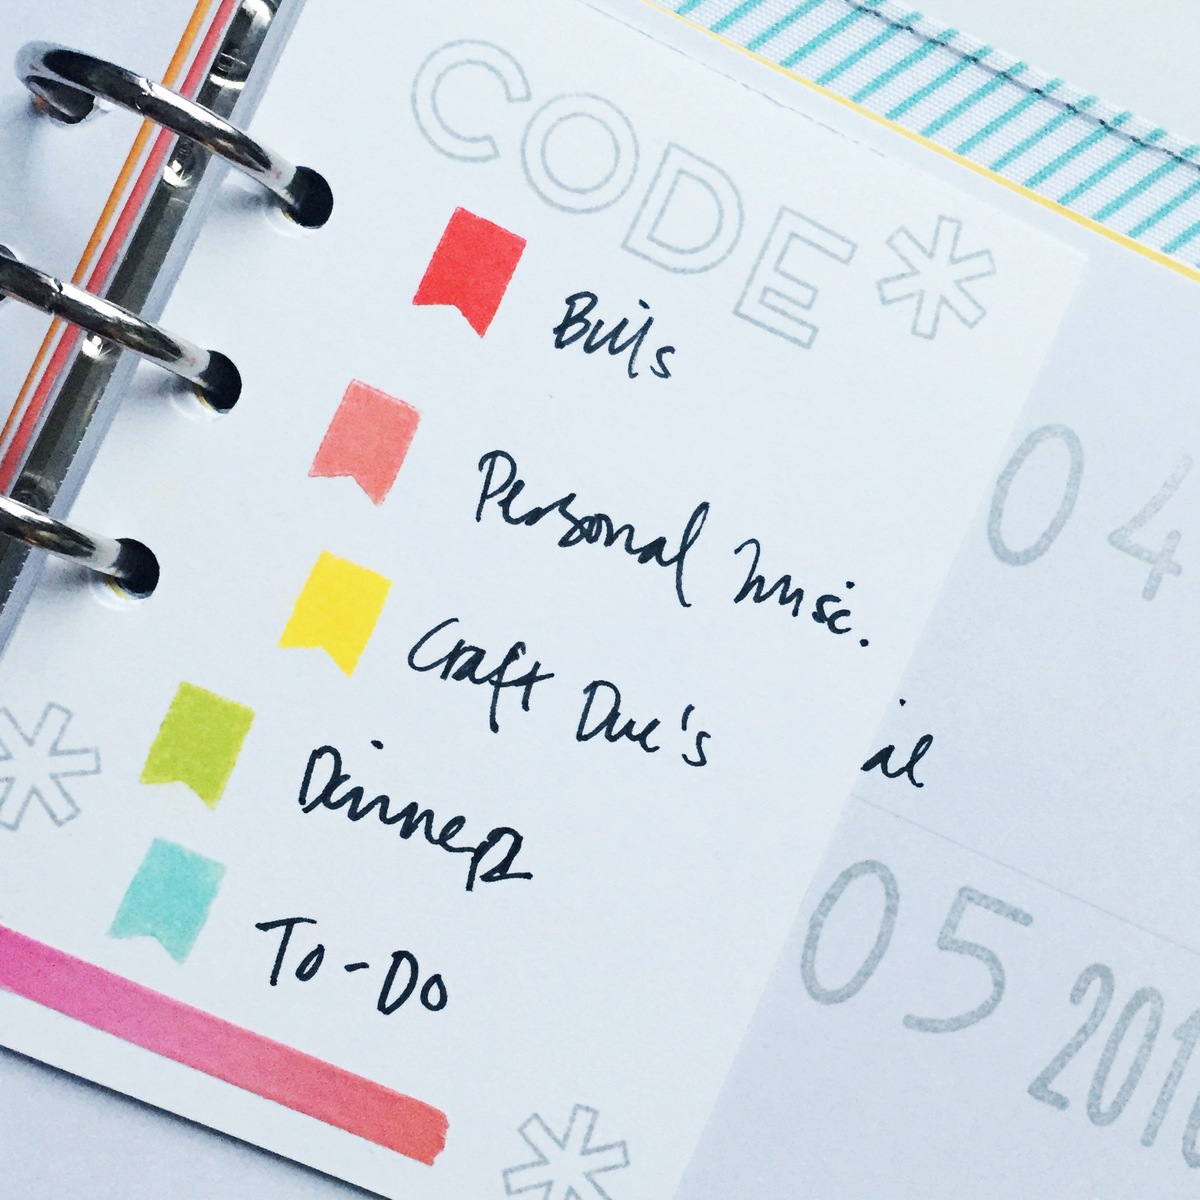 CODE*
Bills
Personal misc.
Craft Due's
Dinner
To-Do
04
al
05
201